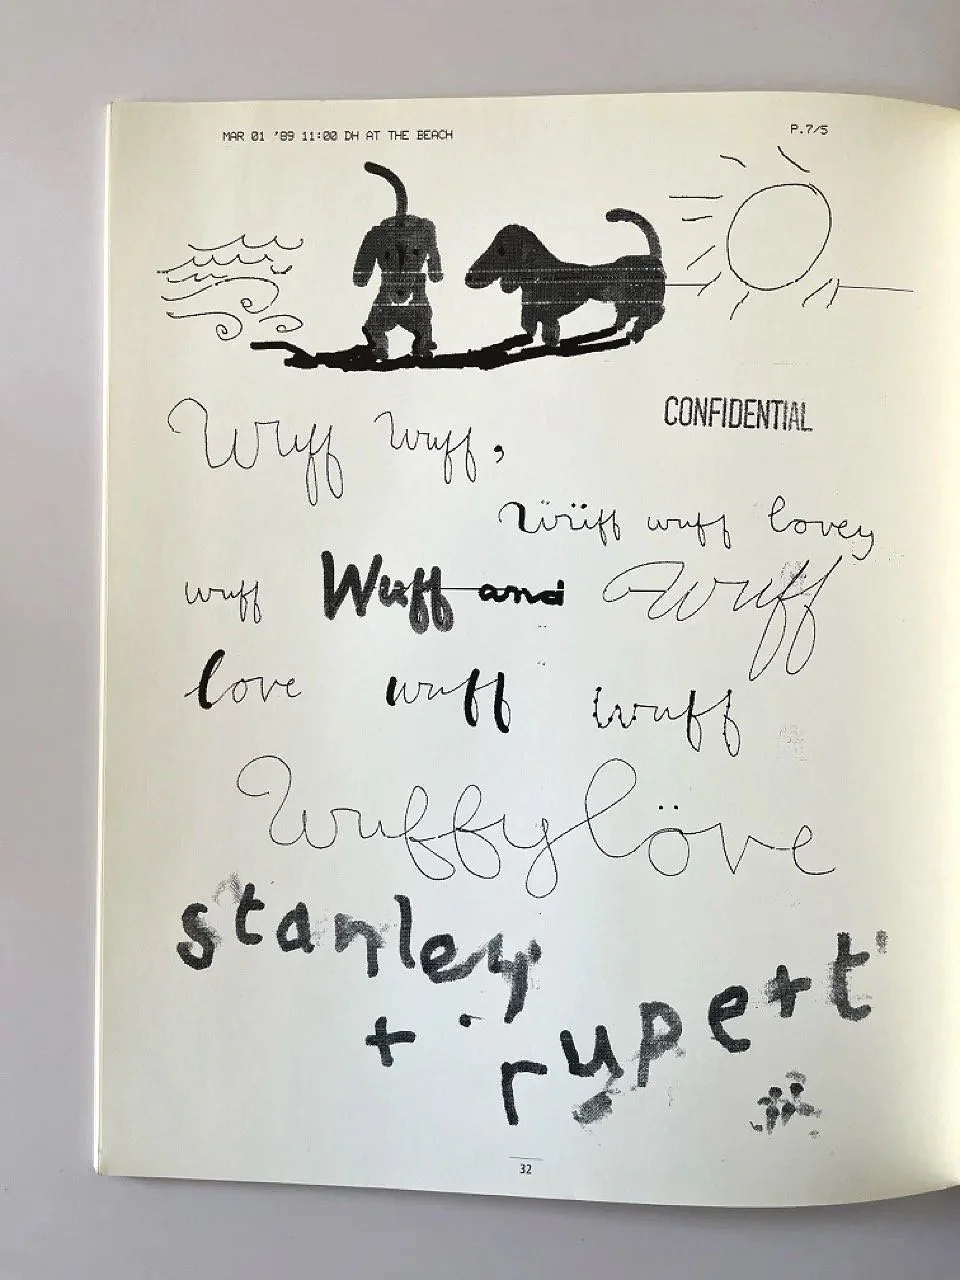 MAR 01 '89 11:00 DH AT THE BEACH P.7/5
CONFIDENTIAL
Wuff Wuff,
Wüff wuff lovey
wuff Wuff and Wuff
love wuff wuff
Wuffylöve
stanley
+ rupert
32